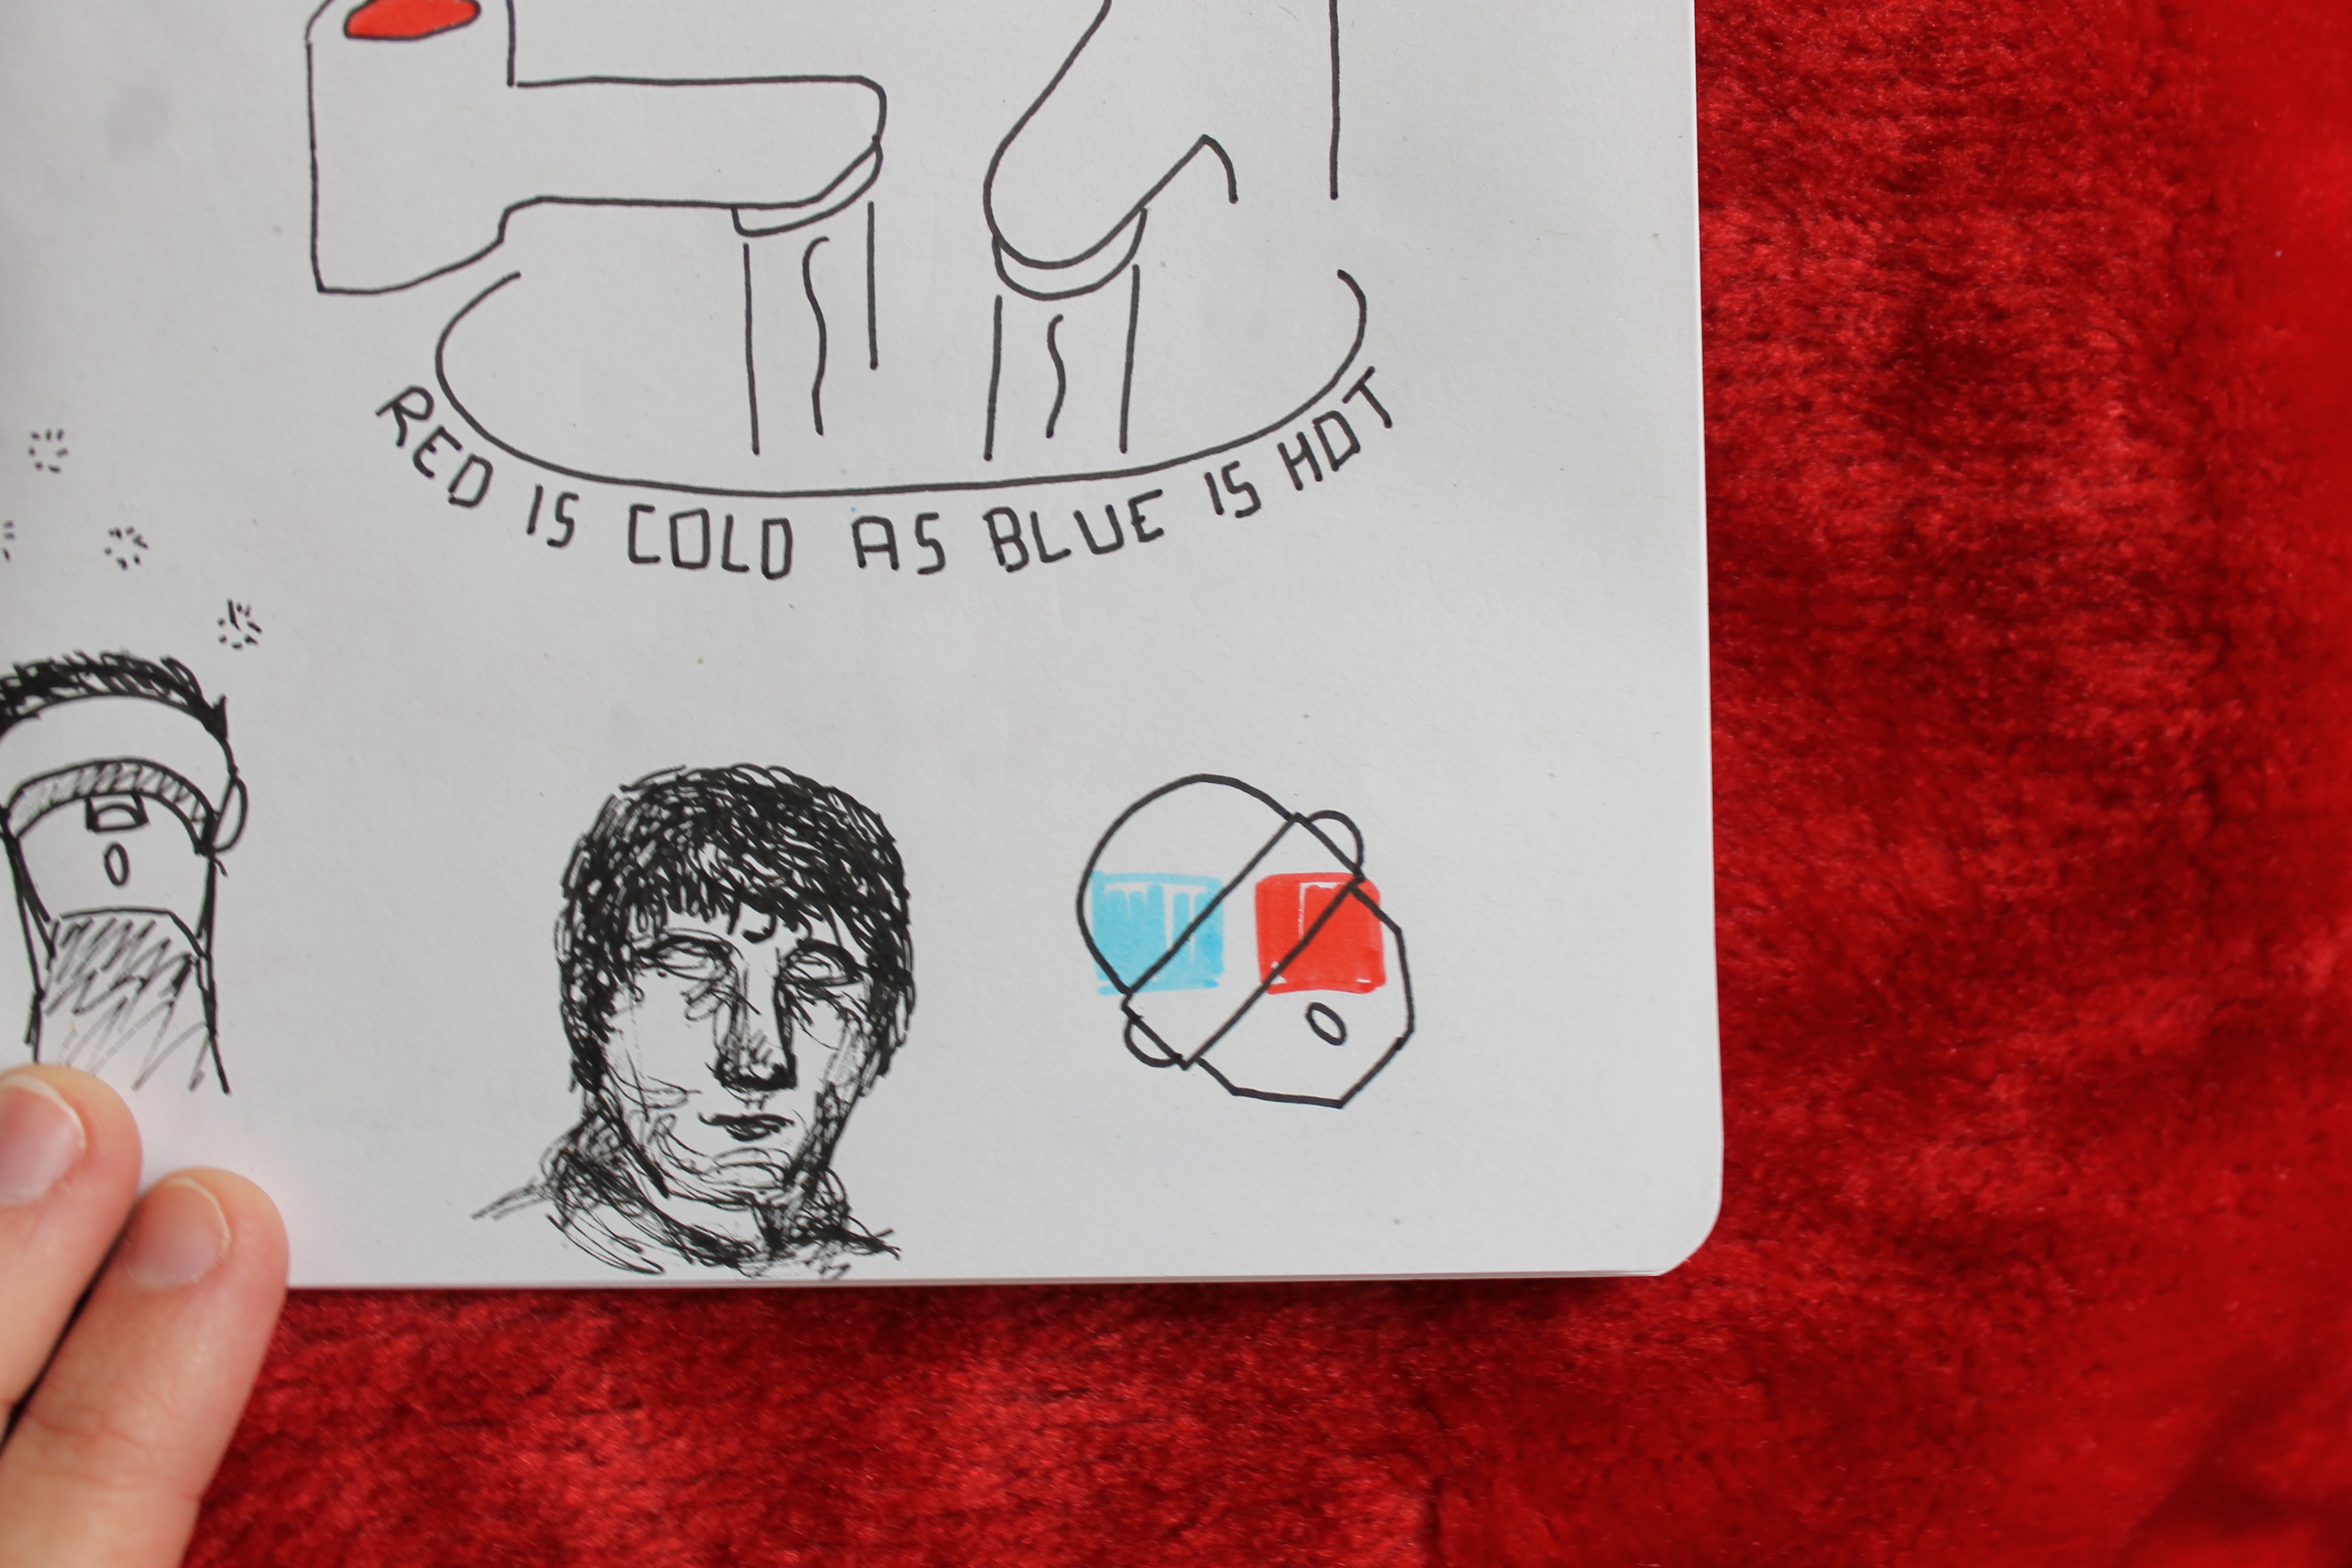 RED IS COLD AS BLUE IS HOT